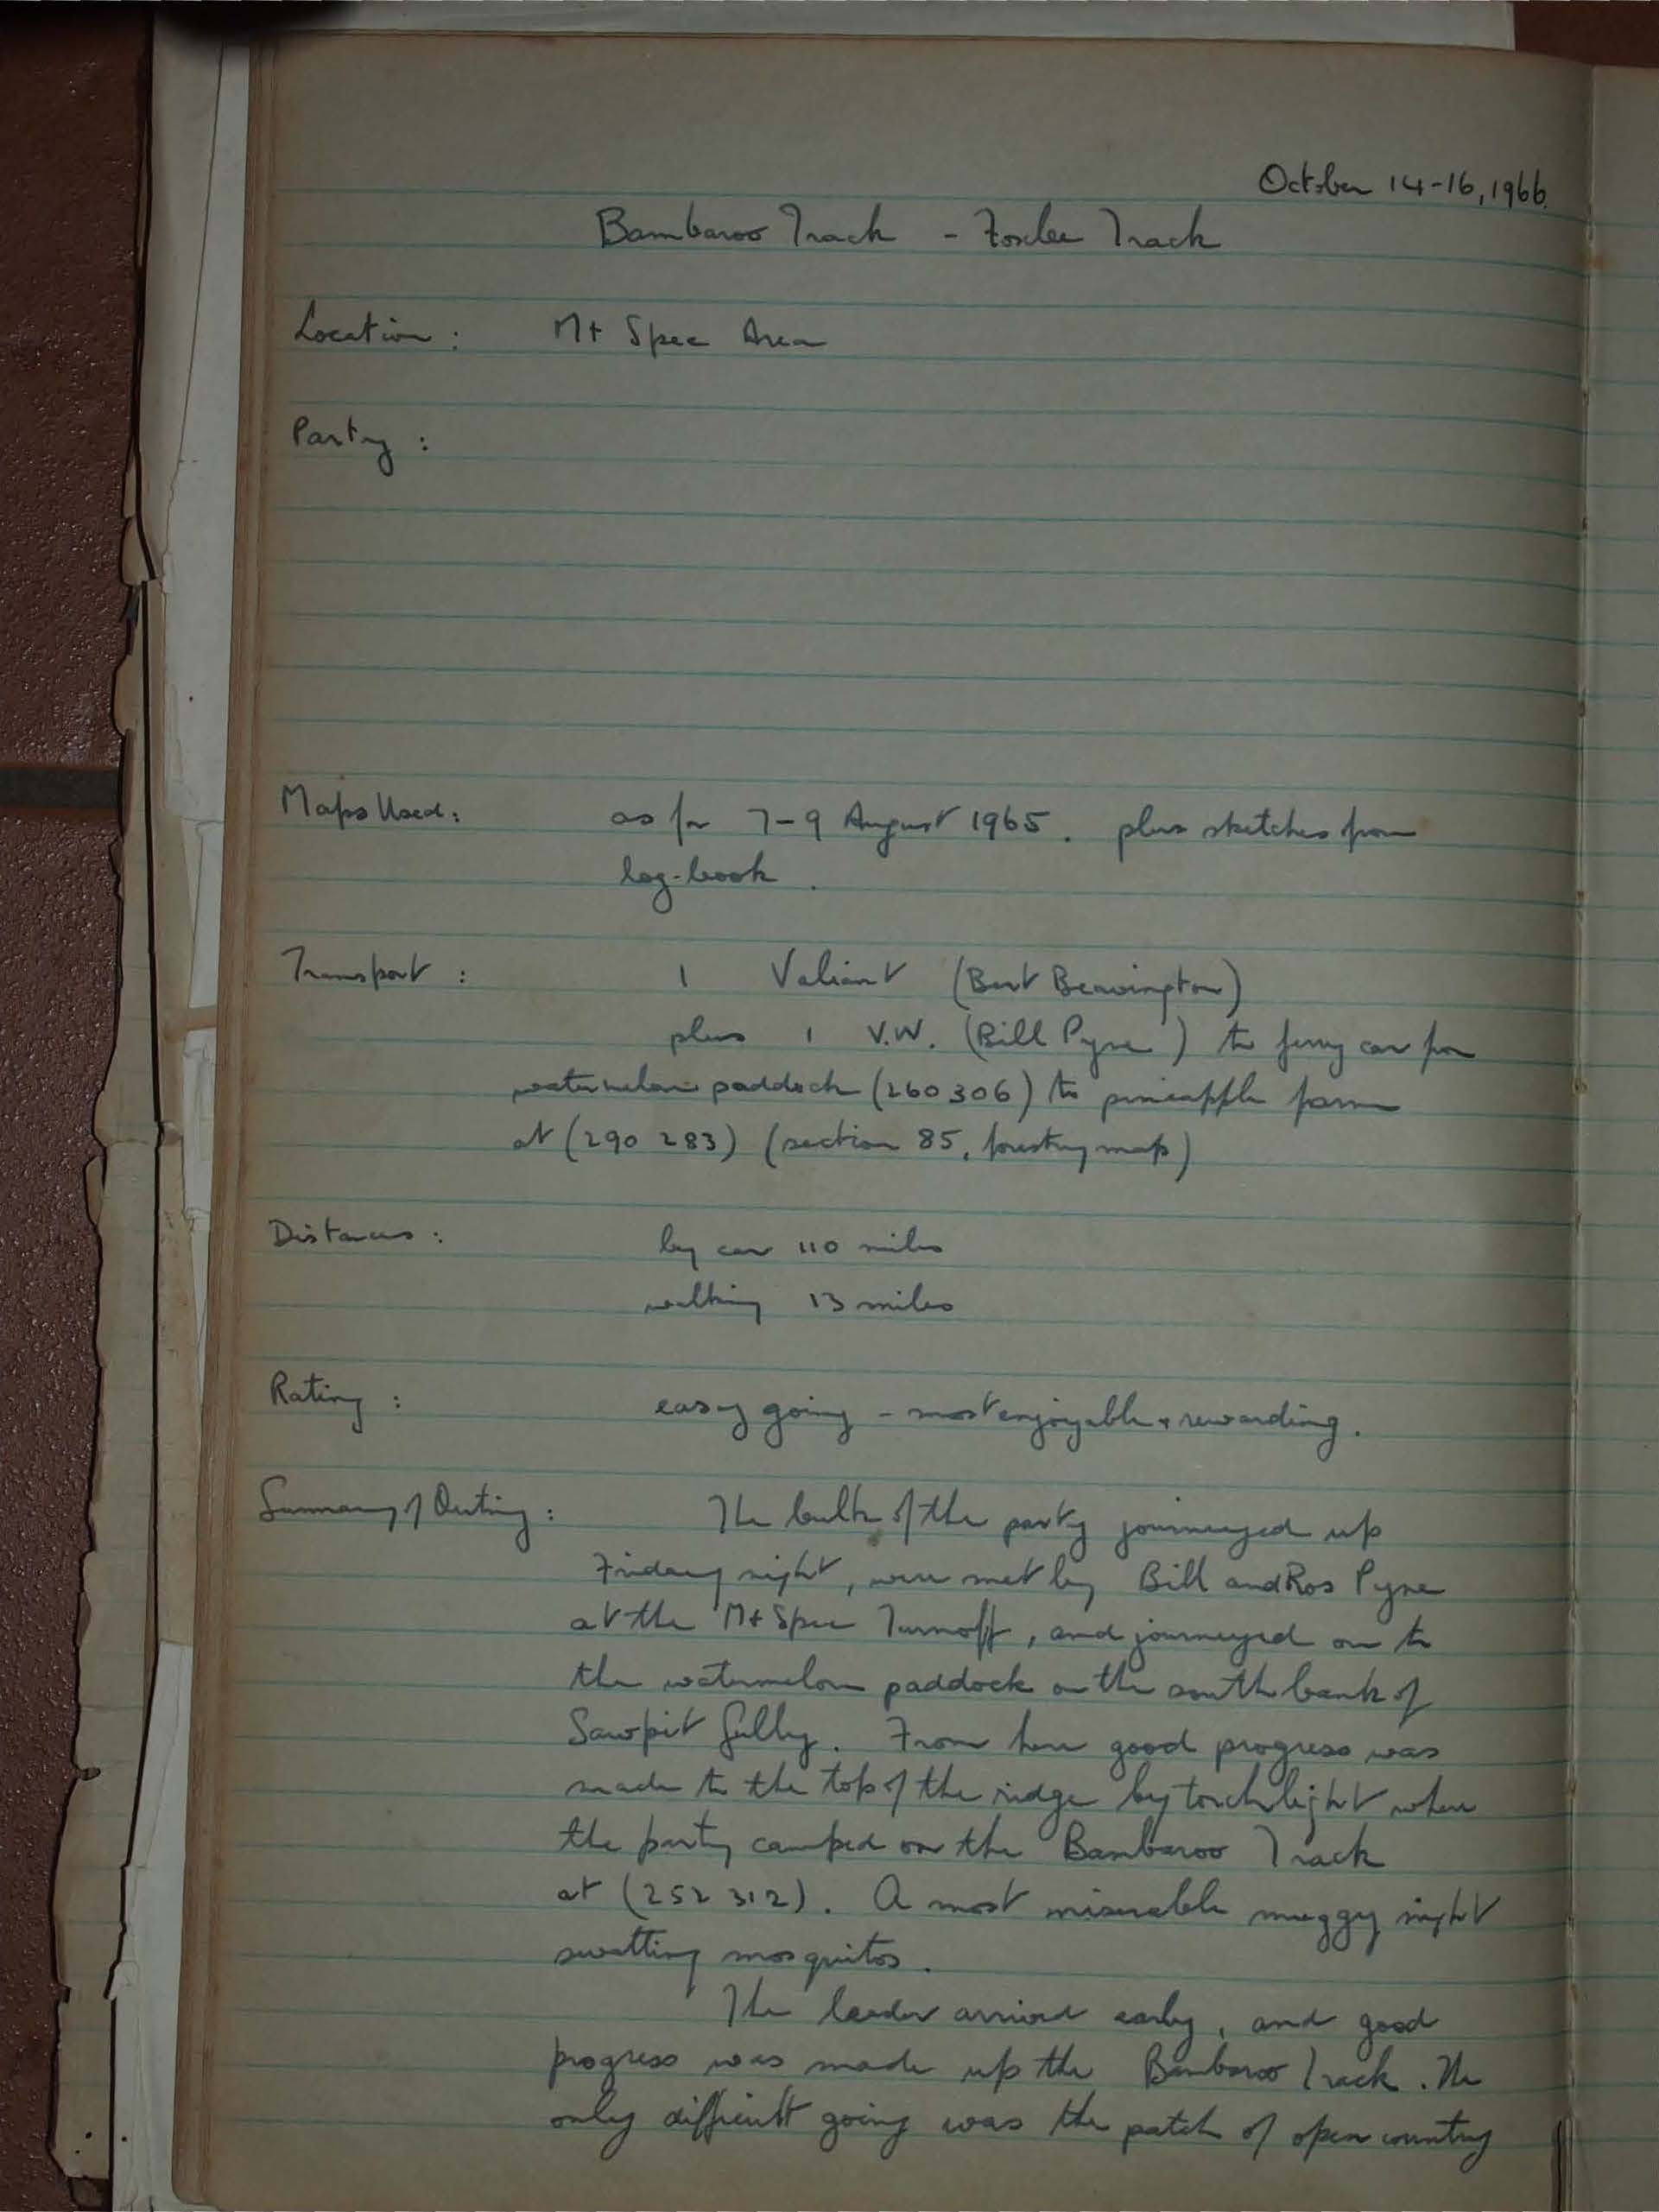 October 14-16, 1966.
Bambaroo Track - Foxlee Track
Location : Mt Spec Area
Party :
Maps Used: as for 7-9 August 1965. plus sketches from
log-book.
Transport : 1 Valiant (Bert Beavington)
plus 1 V.W. (Bill Pyne) to ferry car from
watermelon paddock (260306) to pineapple farm
at (290 283) (section 85, forestry map)
Distances : by car 110 miles
walking 13 miles
Rating : easy going - most enjoyable + rewarding.
Summary of Outing : The bulk of the party journeyed up
Friday night, were met by Bill and Ros Pyne
at the Mt Spec Turnoff, and journeyed on to
the watermelon paddock on the south bank of
Sawpit Gully. From here good progress was
made to the top of the ridge by torchlight where
the party camped on the Bambaroo Track
at (252 312). A most miserable muggy night
swatting mosquitos.
The leader arrived early, and good
progress was made up the Bambaroo Track. The
only difficult going was the patch of open country